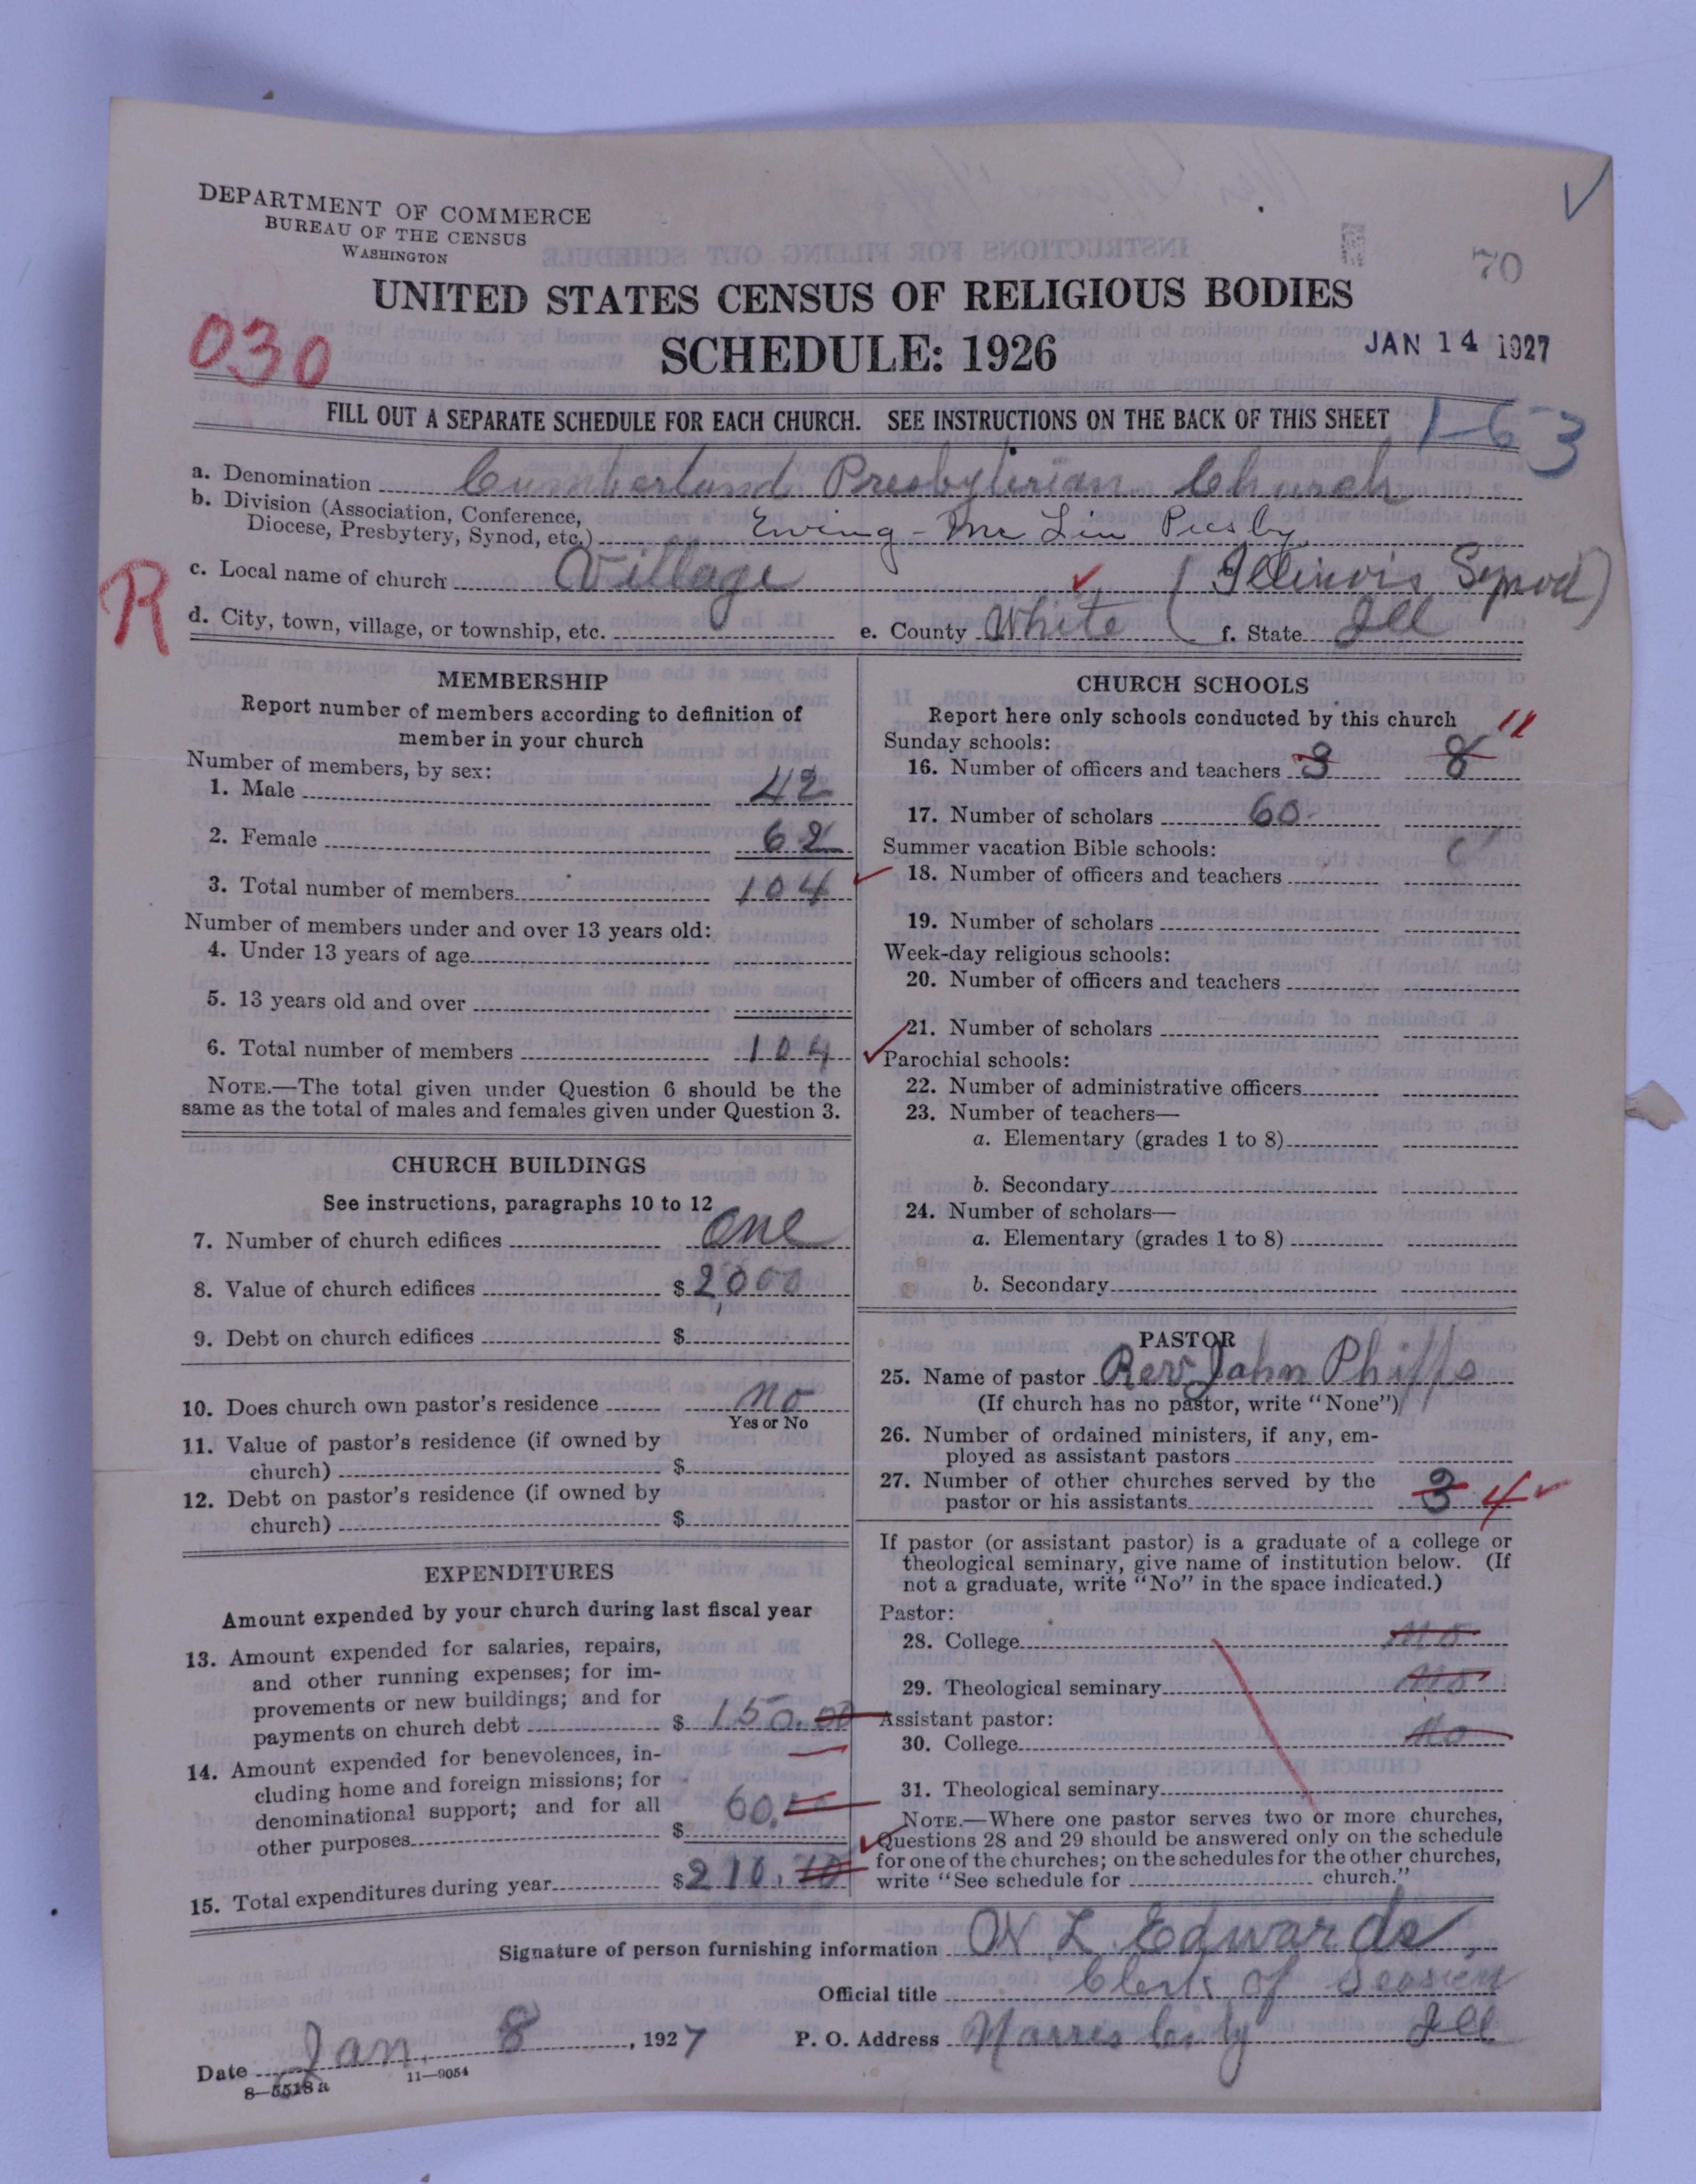 DEPARTMENT OF COMMERCE
BUREAU OF THE CENSUS
WASHINGTON
70
UNITED STATES CENSUS OF RELIGIOUS BODIES
030
SCHEDULE: 1926
JAN 14 1927
FILL OUT A SEPARATE SCHEDULE FOR EACH CHURCH. SEE INSTRUCTIONS ON THE BACK OF THIS SHEET
1-63
a. Denomination Cumberland Presbyterian Church
b. Division (Association, Conference,
Diocese, Presbytery, Synod, etc.) Ewing - Mc Lin Presby
c. Local name of church Village (Illinois Synod)
R
d. City, town, village, or township, etc. e. County White f. State Ill
MEMBERSHIP
Report number of members according to definition of
member in your church
Number of members, by sex:
1. Male 42
2. Female 62
3. Total number of members 104
Number of members under and over 13 years old:
4. Under 13 years of age
5. 13 years old and over
6. Total number of members 104
NOTE.—The total given under Question 6 should be the
same as the total of males and females given under Question 3.
CHURCH BUILDINGS
See instructions, paragraphs 10 to 12
7. Number of church edifices one
8. Value of church edifices $ 2,000
9. Debt on church edifices $
10. Does church own pastor's residence No
Yes or No
11. Value of pastor's residence (if owned by
church) $
12. Debt on pastor's residence (if owned by
church) $
EXPENDITURES
Amount expended by your church during last fiscal year
13. Amount expended for salaries, repairs,
and other running expenses; for im-
provements or new buildings; and for
payments on church debt $ 150.00
14. Amount expended for benevolences, in-
cluding home and foreign missions; for
denominational support; and for all
other purposes $ 60.
15. Total expenditures during year $ 210.
CHURCH SCHOOLS
Report here only schools conducted by this church
Sunday schools: 11
16. Number of officers and teachers 3 8
17. Number of scholars 60
Summer vacation Bible schools:
18. Number of officers and teachers
19. Number of scholars
Week-day religious schools:
20. Number of officers and teachers
21. Number of scholars
Parochial schools:
22. Number of administrative officers
23. Number of teachers—
a. Elementary (grades 1 to 8)
b. Secondary
24. Number of scholars—
a. Elementary (grades 1 to 8)
b. Secondary
PASTOR
25. Name of pastor Rev John Phipps
(If church has no pastor, write "None")
26. Number of ordained ministers, if any, em-
ployed as assistant pastors
27. Number of other churches served by the
pastor or his assistants 3 4
If pastor (or assistant pastor) is a graduate of a college or
theological seminary, give name of institution below. (If
not a graduate, write "No" in the space indicated.)
Pastor:
28. College No
29. Theological seminary No
Assistant pastor:
30. College No
31. Theological seminary
NOTE.—Where one pastor serves two or more churches,
Questions 28 and 29 should be answered only on the schedule
for one of the churches; on the schedules for the other churches,
write "See schedule for church."
Signature of person furnishing information L Edwards
Official title Clerk of Session
Date Jan. 8, 1927 P. O. Address Norris City Ill
8—5518a 11—9054